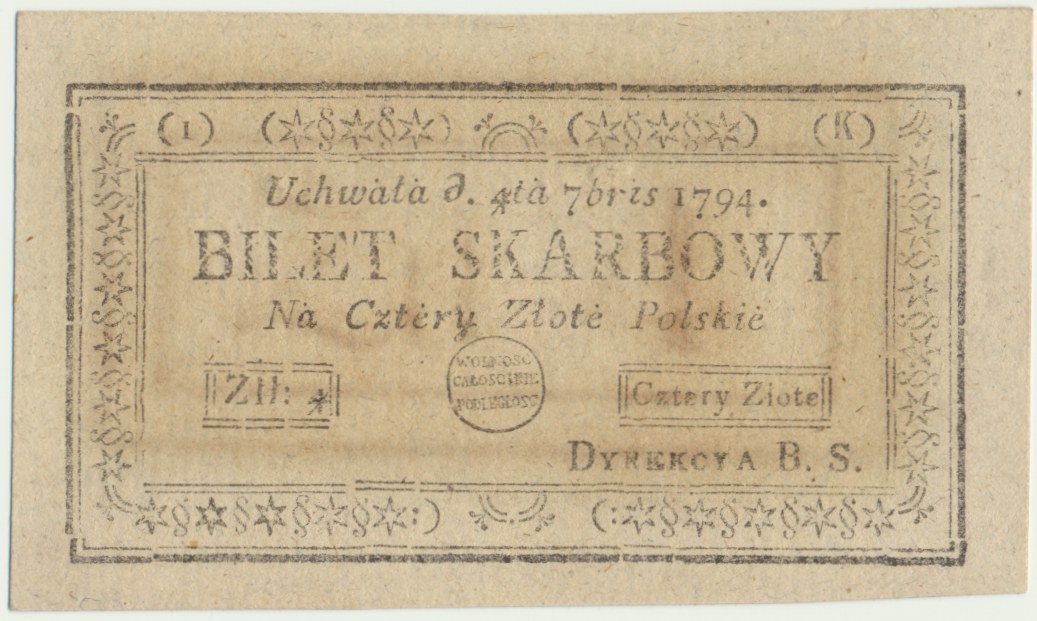 (1) (K)
Uchwała d. 4ta 7bris 1794.
BILET SKARBOWY
Nà Cztèry Złotè Polskiè
Złł: 4
WOLNOSC
CAŁOSC I NIE
PODLEGŁOSC
Cztery Złote
DYREKCYA B. S.